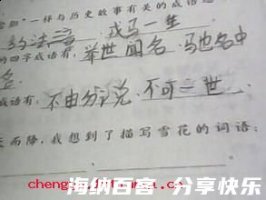 一样与历史故事有关的成语
约法三 戎马一生
的四字成语有,举世闻名、马也名中
成语有,不由分说、不可一世
天而降,我想到了描写雪花的词语:
海纳百客 分享快乐